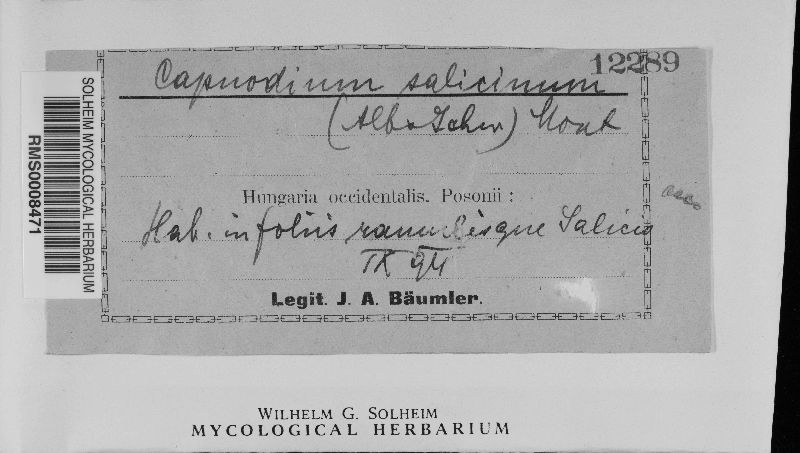 12289
Capnodium salicinum
(Alb & Schw) Mont
Hungaria occidentalis. Posonii :
Hab. in foliis ramulisque Salicis
IX 94
Legit. J. A. Bäumler.
SOLHEIM MYCOLOGICAL HERBARIUM
RMS0008471
WILHELM G. SOLHEIM
MYCOLOGICAL HERBARIUM